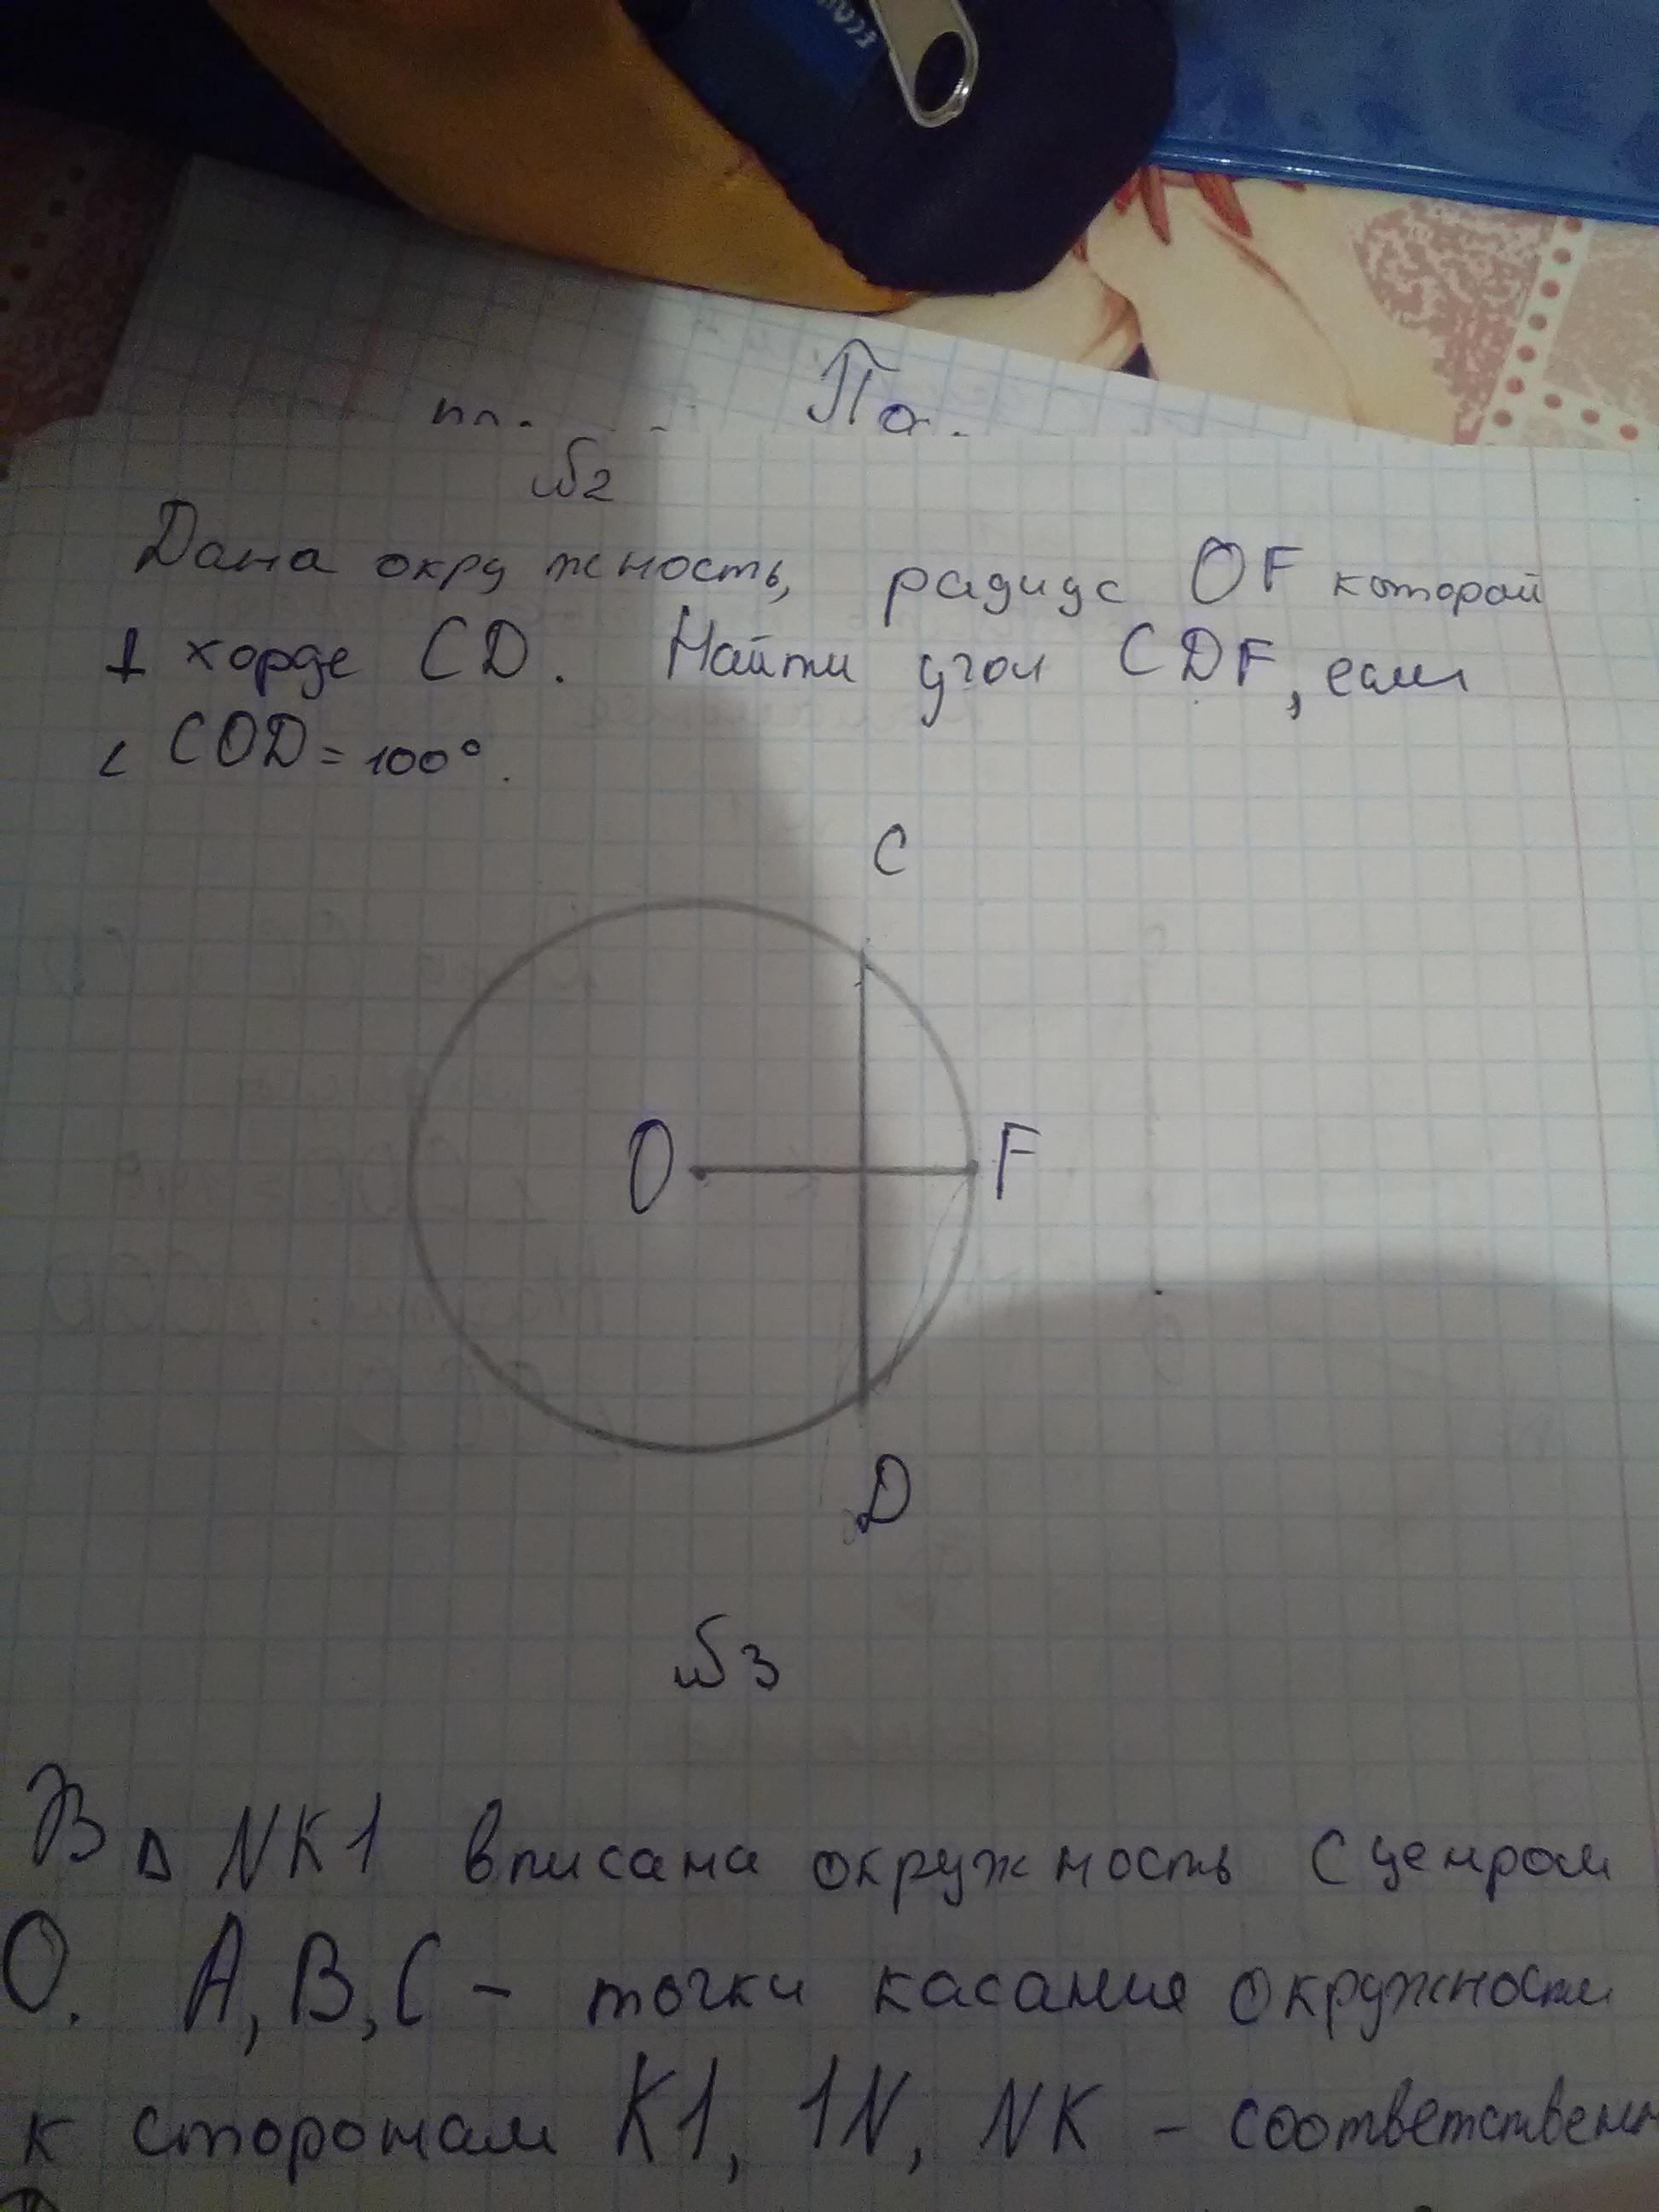 По
№2
Дана окружность, радиус OF которой
⊥ хорде CD. Найти угол CDF, если
∠ COD = 100°.
C
O
F
D
№3
В △ NK1 вписана окружность с ценром
O. A, B, C - точки касания окружности
к сторонам K1, 1N, NK - соответственн